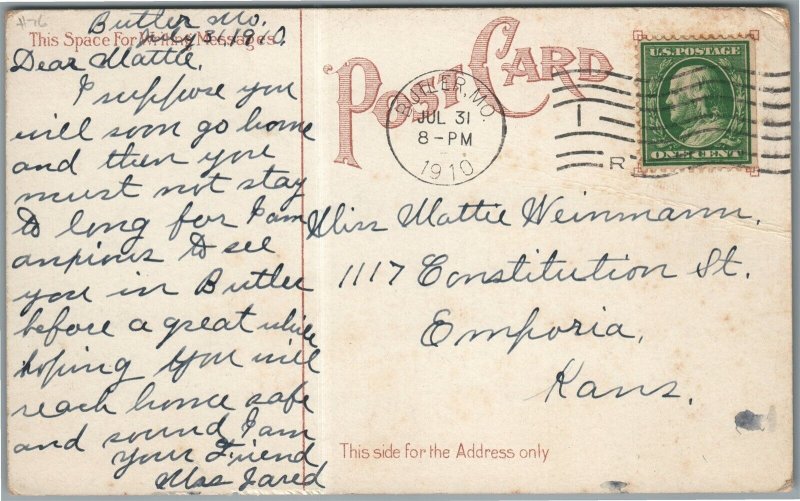 #76
Butler Mo.
July 31 1910.
This Space For Writing Messages
Dear Mattie,
I suppose you
will soon go home
and then you
must not stay
to long for I am
anxious to see
you in Butler
before a great while
hoping you will
reach home safe
and sound I am
your Friend
Mrs Jared
POST CARD
BUTLER, MO.
JUL 31
8-PM
1910
1
R
U.S. POSTAGE
ONE CENT
Miss Mattie Weinmann,
1117 Constitution St.
Emporia,
Kans.
This side for the Address only